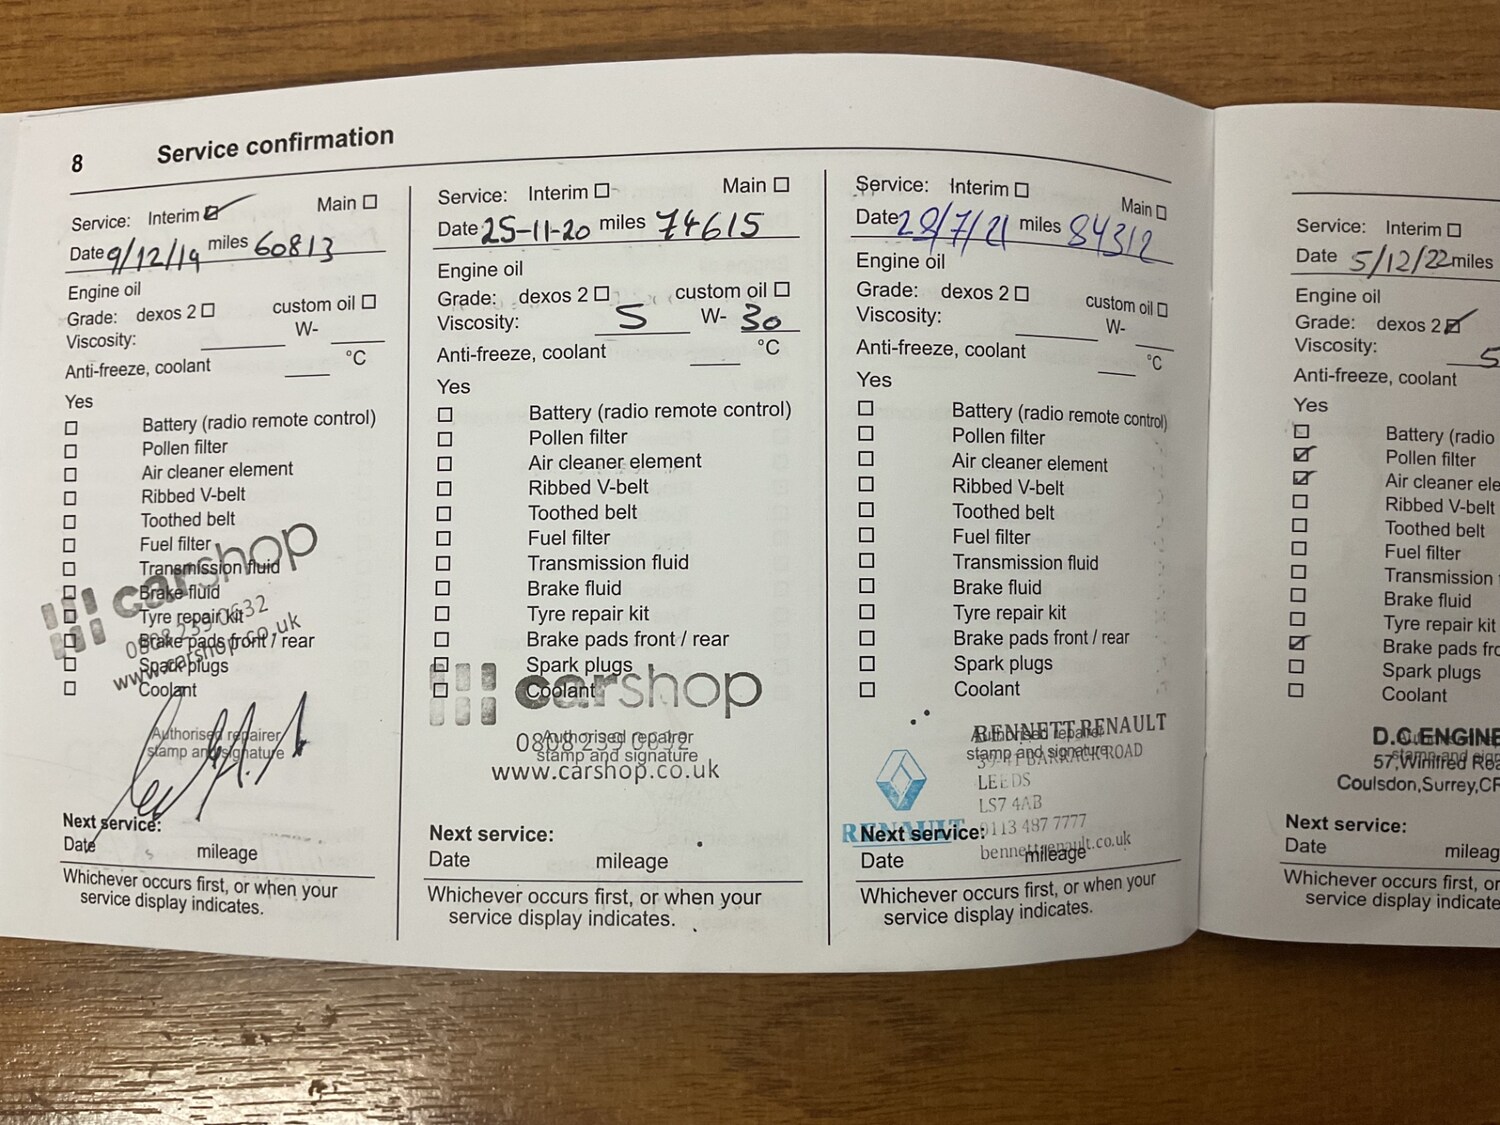 8 Service confirmation
Service: Interim Main
Date 9/12/19 miles 60813
Engine oil
Grade: dexos 2 custom oil
Viscosity: W-
Anti-freeze, coolant °C
Yes
Battery (radio remote control)
Pollen filter
Air cleaner element
Ribbed V-belt
Toothed belt
Fuel filter
Transmission fluid
Brake fluid
Tyre repair kit
Brake pads front / rear
Spark plugs
Coolant
carshop
www.carshop.co.uk
Authorised repairer
stamp and signature
Next service:
Date mileage
Whichever occurs first, or when your
service display indicates.
Service: Interim Main
Date 25-11-20 miles 74615
Engine oil
Grade: dexos 2 custom oil
Viscosity: 5 W- 30
Anti-freeze, coolant °C
Yes
Battery (radio remote control)
Pollen filter
Air cleaner element
Ribbed V-belt
Toothed belt
Fuel filter
Transmission fluid
Brake fluid
Tyre repair kit
Brake pads front / rear
Spark plugs
Coolant
carshop
Authorised repairer
stamp and signature
www.carshop.co.uk
Next service:
Date mileage
Whichever occurs first, or when your
service display indicates.
Service: Interim Main
Date 28/7/21 miles 84312
Engine oil
Grade: dexos 2 custom oil
Viscosity: W-
Anti-freeze, coolant °C
Yes
Battery (radio remote control)
Pollen filter
Air cleaner element
Ribbed V-belt
Toothed belt
Fuel filter
Transmission fluid
Brake fluid
Tyre repair kit
Brake pads front / rear
Spark plugs
Coolant
BENNETT RENAULT
Authorised repairer
stamp and signature
BARRACK ROAD
LEEDS
LS7 4AB
0113 487 7777
bennettrenault.co.uk
RENAULT
Next service:
Date mileage
Whichever occurs first, or when your
service display indicates.
Service: Interim
Date 5/12/22 miles
Engine oil
Grade: dexos 2
Viscosity: 5
Anti-freeze, coolant
Yes
Battery (radio
Pollen filter
Air cleaner ele
Ribbed V-belt
Toothed belt
Fuel filter
Transmission
Brake fluid
Tyre repair kit
Brake pads fro
Spark plugs
Coolant
D.C.ENGINE
57, Winifred Roa
Coulsdon, Surrey, CR
Next service:
Date mileag
Whichever occurs first, or
service display indicate